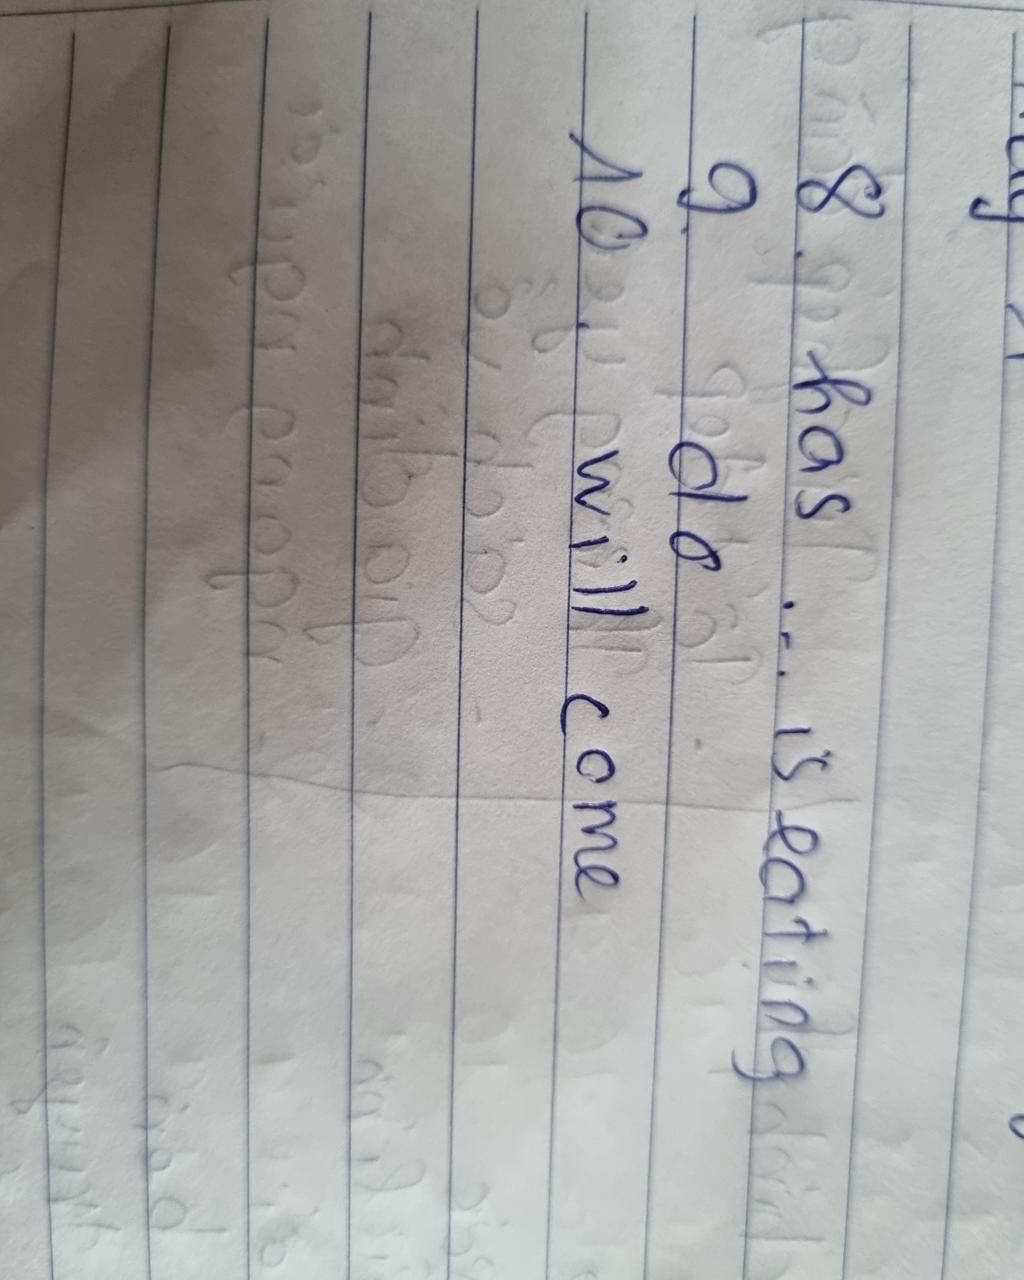 8. has ... is eating
9. do
10. will come